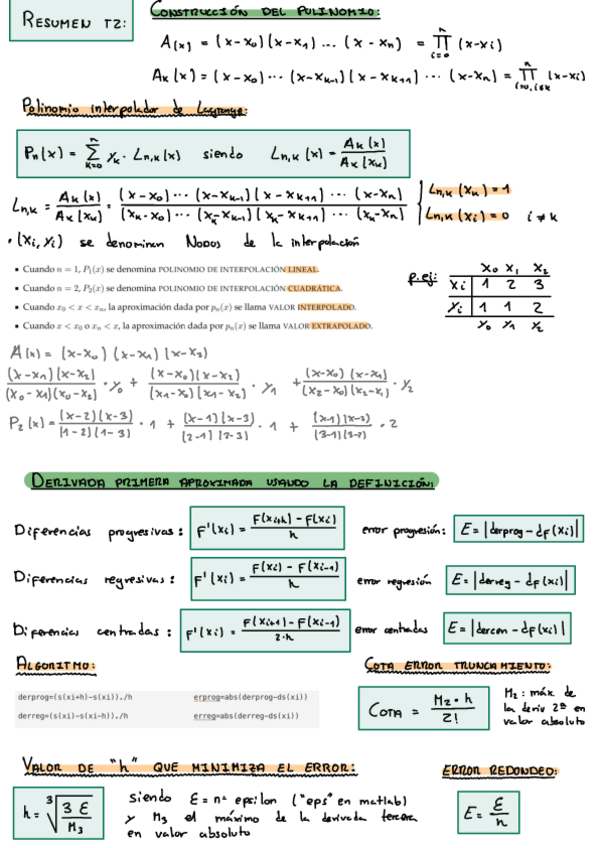 RESUMEN T2:
CONSTRUCCIÓN DEL POLINOMIO:
A(x) = (x-x₀)(x-x₁)... (x - xₙ) = ∏ⁿᵢ₌₀ (x-xᵢ)
Aₖ(x) = (x-x₀)··· (x-xₖ₋₁)(x-xₖ₊₁) ··· (x-xₙ) = ∏ⁿᵢ₌₀, ᵢ≠ₖ (x-xᵢ)
Polinomio interpolador de Lagrange:
Pₙ(x) = Σⁿₖ₌₀ yₖ · Lₙ,ₖ(x) siendo Lₙ,ₖ(x) = Aₖ(x) / Aₖ(xₖ)
Lₙ,ₖ = Aₖ(x) / Aₖ(xₖ) = (x-x₀)···(x-xₖ₋₁)(x-xₖ₊₁)···(x-xₙ) / (xₖ-x₀)···(xₖ-xₖ₋₁)(xₖ-xₖ₊₁)···(xₖ-xₙ) { Lₙ,ₖ(xₖ) = 1
Lₙ,ₖ(xᵢ) = 0 i ≠ k
· (xᵢ, yᵢ) se denominan NODOS de la interpolación
▪ Cuando n = 1, P₁(x) se denomina POLINOMIO DE INTERPOLACIÓN LINEAL.
▪ Cuando n = 2, P₂(x) se denomina POLINOMIO DE INTERPOLACIÓN CUADRÁTICA.
▪ Cuando x₀ < x < xₙ, la aproximación dada por pₙ(x) se llama VALOR INTERPOLADO.
▪ Cuando x < x₀ o xₙ < x, la aproximación dada por pₙ(x) se llama VALOR EXTRAPOLADO.
p.ej:
x₀ x₁ x₂
xᵢ 1 2 3
yᵢ 1 1 2
y₀ y₁ y₂
A(x) = (x-x₀)(x-x₁)(x-x₂)
(x-x₁)(x-x₂) / (x₀-x₁)(x₀-x₂) · y₀ + (x-x₀)(x-x₂) / (x₁-x₀)(x₁-x₂) · y₁ + (x-x₀)(x-x₁) / (x₂-x₀)(x₂-x₁) · y₂
P₂(x) = (x-2)(x-3) / (1-2)(1-3) · 1 + (x-1)(x-3) / (2-1)(2-3) · 1 + (x-1)(x-2) / (3-1)(3-2) · 2
DERIVADA PRIMERA APROXIMADA USANDO LA DEFINICIÓN:
Diferencias progresivas: F'(xᵢ) = F(xᵢ+h) - F(xᵢ) / h error progresión: E = |derprog - dF(xᵢ)|
Diferencias regresivas: F'(xᵢ) = F(xᵢ) - F(xᵢ-₁) / h error regresión E = |derreg - dF(xᵢ)|
Diferencias centradas: F'(xᵢ) = F(xᵢ+₁) - F(xᵢ-₁) / 2·h error centradas E = |dercen - dF(xᵢ)|
ALGORITMO:
derprog=(s(xi+h)-s(xi))./h erprog=abs(derprog-ds(xi))
derreg=(s(xi)-s(xi-h))./h erreg=abs(derreg-ds(xi))
COTA ERROR TRUNCAMIENTO:
COTA = M₂ · h / 2!
M₂: máx de
la deriv 2ª en
valor absoluto
VALOR DE "h" QUE MINIMIZA EL ERROR:
h = ³√(3 ε / M₃)
siendo ε = nº epsilon ("eps" en matlab)
y M₃ el máximo de la derivada tercera
en valor absoluto
ERROR REDONDEO:
E = ε / h